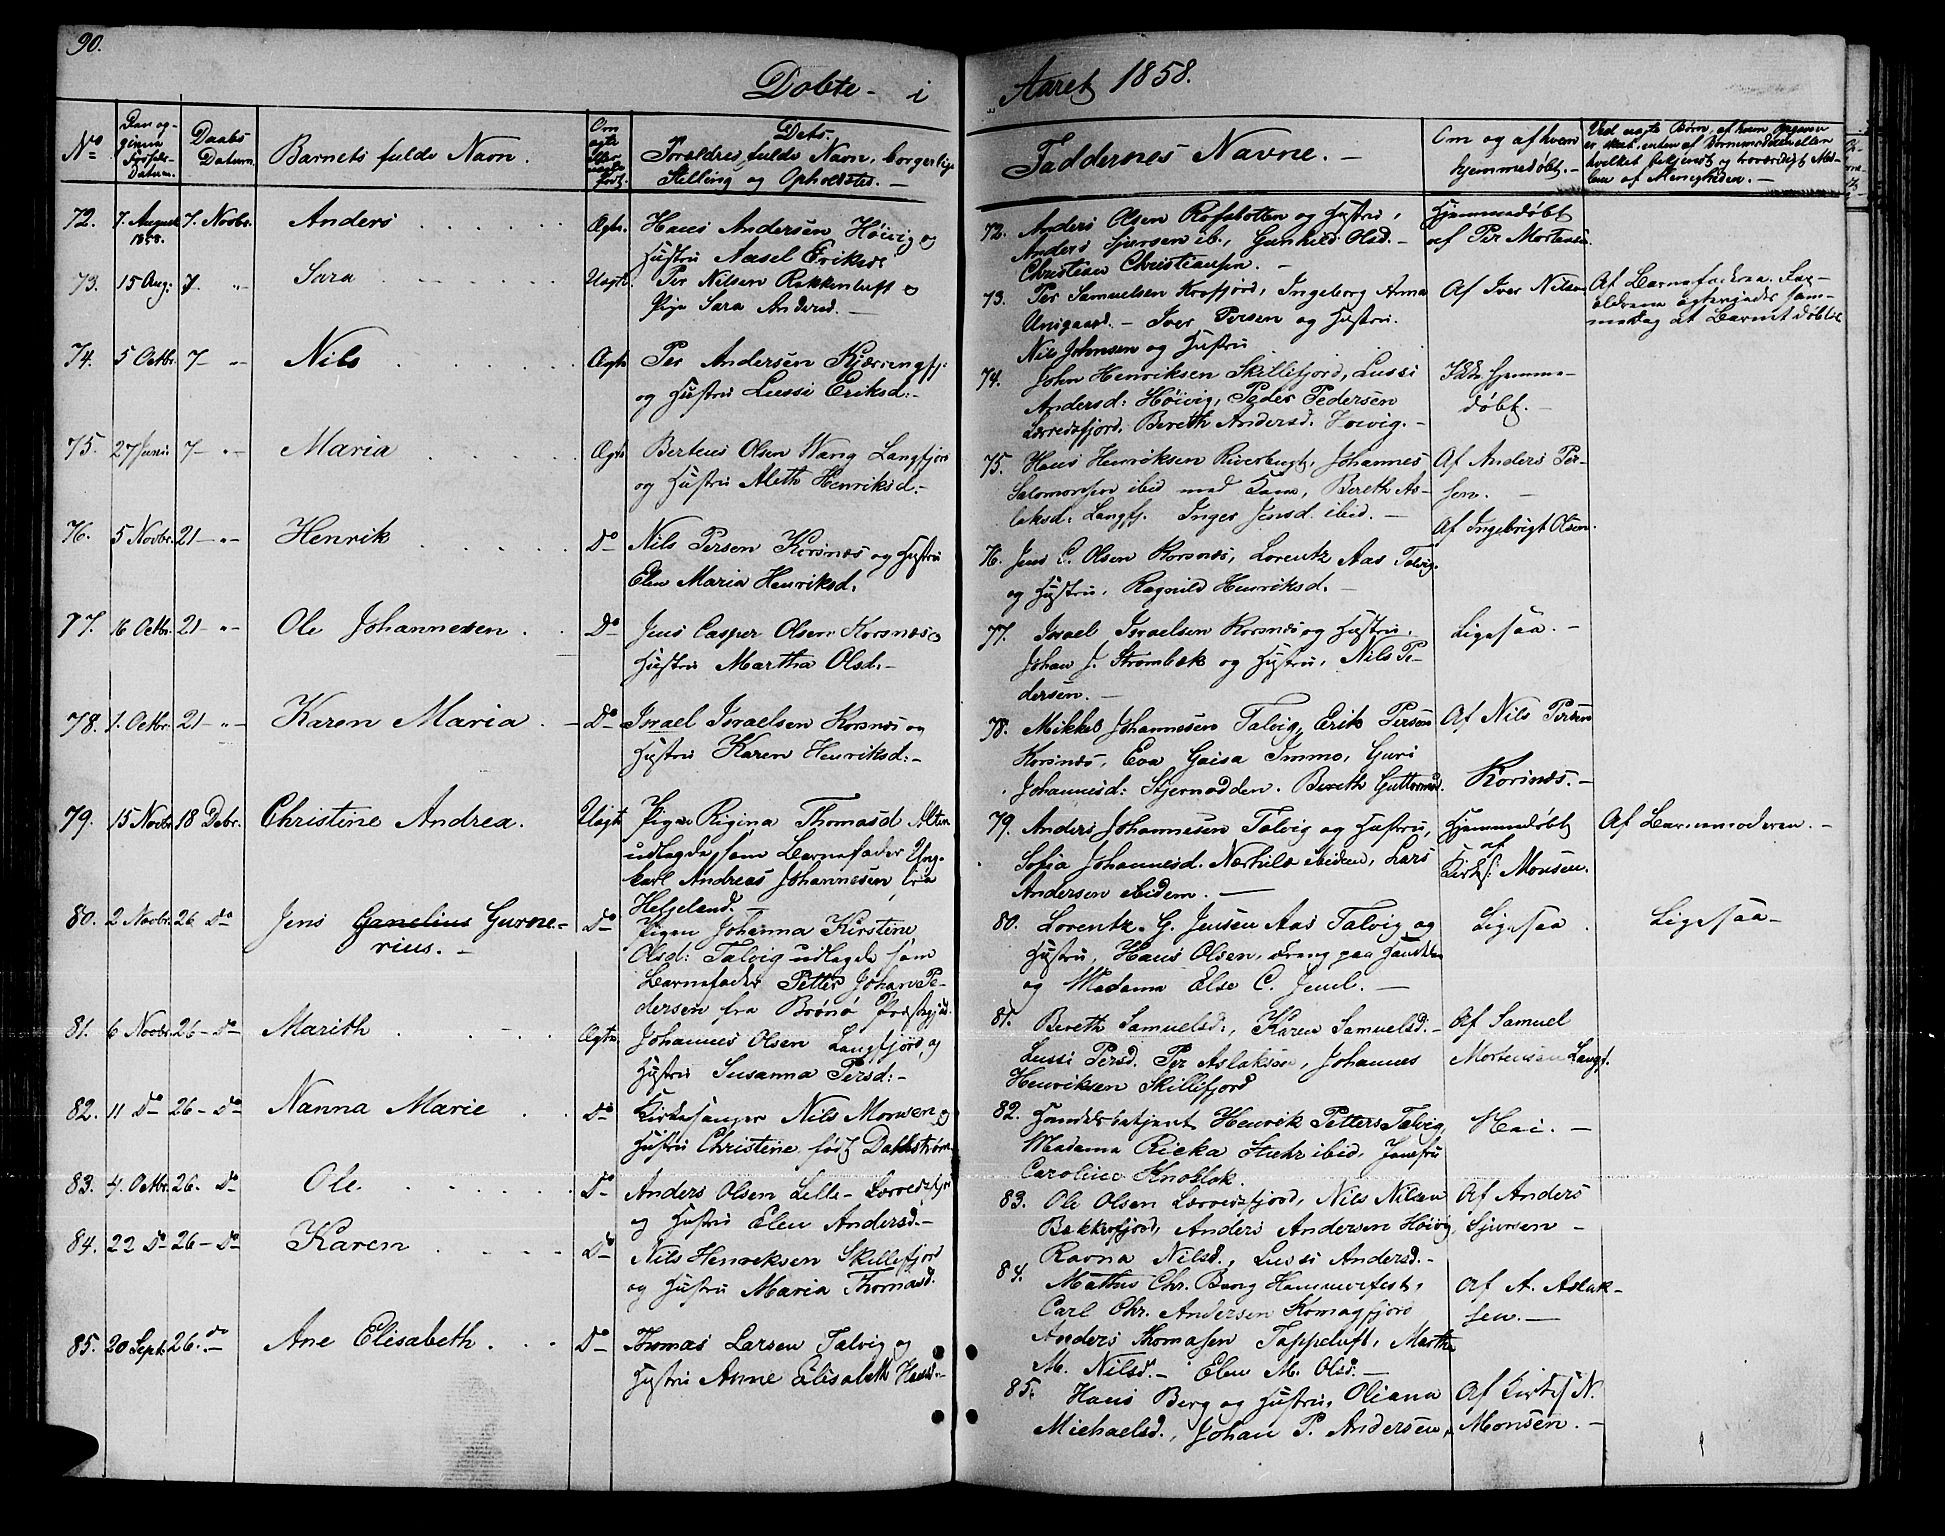 90.
Døbte i Aaret 1858.
No
Daabs Datum.
Barnets fulde Navn.
Dets Forældres fulde Navn, borgerlige
Stilling og Opholdsted.
Faddernes Navne.
Om og af hvem
hjemmedøbt.
72. 7. August 1858. 7. Novbr. Anders Ægte. Hans Andersen Høivig og
Hustru Aasel Eriksd.
73. 15 Aug: 7 " Sara Uægte Per Nilsen Rekkenluft og
Pige Sara Andersd.
74. 5 Octbr. 7 - " - Nils Ægte Per Andersen Kjæringfj.
og Hustru Lussi Eriksd:
75. 27 Juni 7 - " - Maria Ægte Berteus Olsen Wang Langfjord
og Hustru Aleth Henriksd:
76. 5 Novbr. 21 - " - Henrik Do Nils Persen Korsnæs og Hustru
Elen Maria Henriksd.
77. 16 Octbr. 21 - " - Ole Johannesen Do Jens Casper Olsen Korsnæs og
Hustru Martha Olsd:
78. 1. Octbr. 21 - " - Karen Maria Do Israel Israelsen Korsnæs og
Hustru Karen Henriksd:
79. 15 Novbr. 18 Debr. Christine Andrea. Uægte Pigen Regina Thomasd Alten
udlagde som Barnefader Ung-
karl Andreas Johannesen fra
Helgeland.
80. 2 Novbr. 26 Do Jens Ganelius Gurne-
rius. Do Pigen Johanna Kirstine
Olsd: Talvig udlagde som
Barnefader Petter Johan Pe-
dersen fra Brønø Præstegjeld.
81. 6 Novbr. 26 - Do Marith Ægte Johannes Olsen Langfjord og
Hustru Susanna Persd:
82. 11 Do 26 - Do Nanna Marie Do Kirkesanger Nils Monsen og
Hustru Christine født Dahlstrøm
83. 4. Octbr. 26. Do Ole Do Anders Olsen Lille-Lerredsfjord
og Hustru Elen Andersd.
84. 22 Do 26 - Do Karen Do Nils Henriksen Skillefjord
og Hustru Maria Thomasd.
85. 20 Sept. 26. do Ane Elisabeth Do Thomas Larsen Talvig og
Hustru Anne Elisabeth Hansd.
72. Anders Olsen Rossbotten og Hustru,
Anders Sjursen ib., Gunhild Olsd.
Christian Christiansen.
Hjemmedøbt
af Per Mortensen.
73. Per Samuelsen Krosfjord, Ingeborg Anna
Unigaard. - Iver Persen og Hustru.
Nils Johnsen og Hustru
Af Iver Nilsen
74. John Henriksen Skillefjord, Lussi
Andersd: Høivig, Peder Pedersen
Lerredsfjord, Bereth Andersd. Høivig.
Ikke hjemme-
døbt.
75. Hans Henriksen Riverbugt, Johannes
Salomonsen ibid med Kone, Bereth As-
laksd: Langfj. Inger Jensd. ibid.
Af Anders Per-
sen.
76. Jens C. Olsen Korsnæs, Lorentz Aas Talvig.
og Hustru, Ragnild Henriksd.
Af Ingebrigt Olsen.
77. Israel Israelsen Korsnæs og Hustru,
Johan J. Strømbæk og Hustru, Nils Pe-
dersen.
Ligesaa.
78. Mikkel Johannesen Talvig, Erik Persen
Korsnæs, Eva Gaisa Immo, Guri
Johannesd: Stjernodden. Bereth Guttormsd.
Af Nils Persen
Korsnæs.
79. Anders Johannesen Talvig og Hustru,
Sofia Johannesd. Nerhila ibidem, Lars
Andersen ibidem.
Hjemmedøbt
af
Kirks: Monsen.
Af Barnemoderen.
80. Lorentz G. Jensen Aas Talvig og
Hustru, Hans Olsen, dreng paa Handelen
og Madame Else C. Jentl.
Ligesaa
Ligesaa
81. Bereth Samuelsd:, Karen Samuelsd.
Lussi Persd. Per Aslaksen, Johannes
Henriksen Skillefjord
Af Samuel
Mortensen Langf.
82. Handelsbetjent Henrik Petters Talvig
Madame Ricka Stuhr ibid, Jomfru
Caroline Knoblok.
Nei.
83. Ole Olsen Lerredsfjord, Nils Nilsen
Bekkerfjord, Anders Andersen Høivig
Ravna Nilsd., Lussi Andersd.
Af Anders
Sjursen
84. Mathis Chr. Bang Hammerfest,
Carl Chr. Andersen Komagfjord
Anders Thomasen Tappeluft, Marthe
M. Nilsd. - Elen M. Olsd.
Af A. Aslak-
sen.
85. Hans Berg og Hustru, Oliana
Michaelsd., Johan P. Andersen.
Af Kirks N.
Monsen.